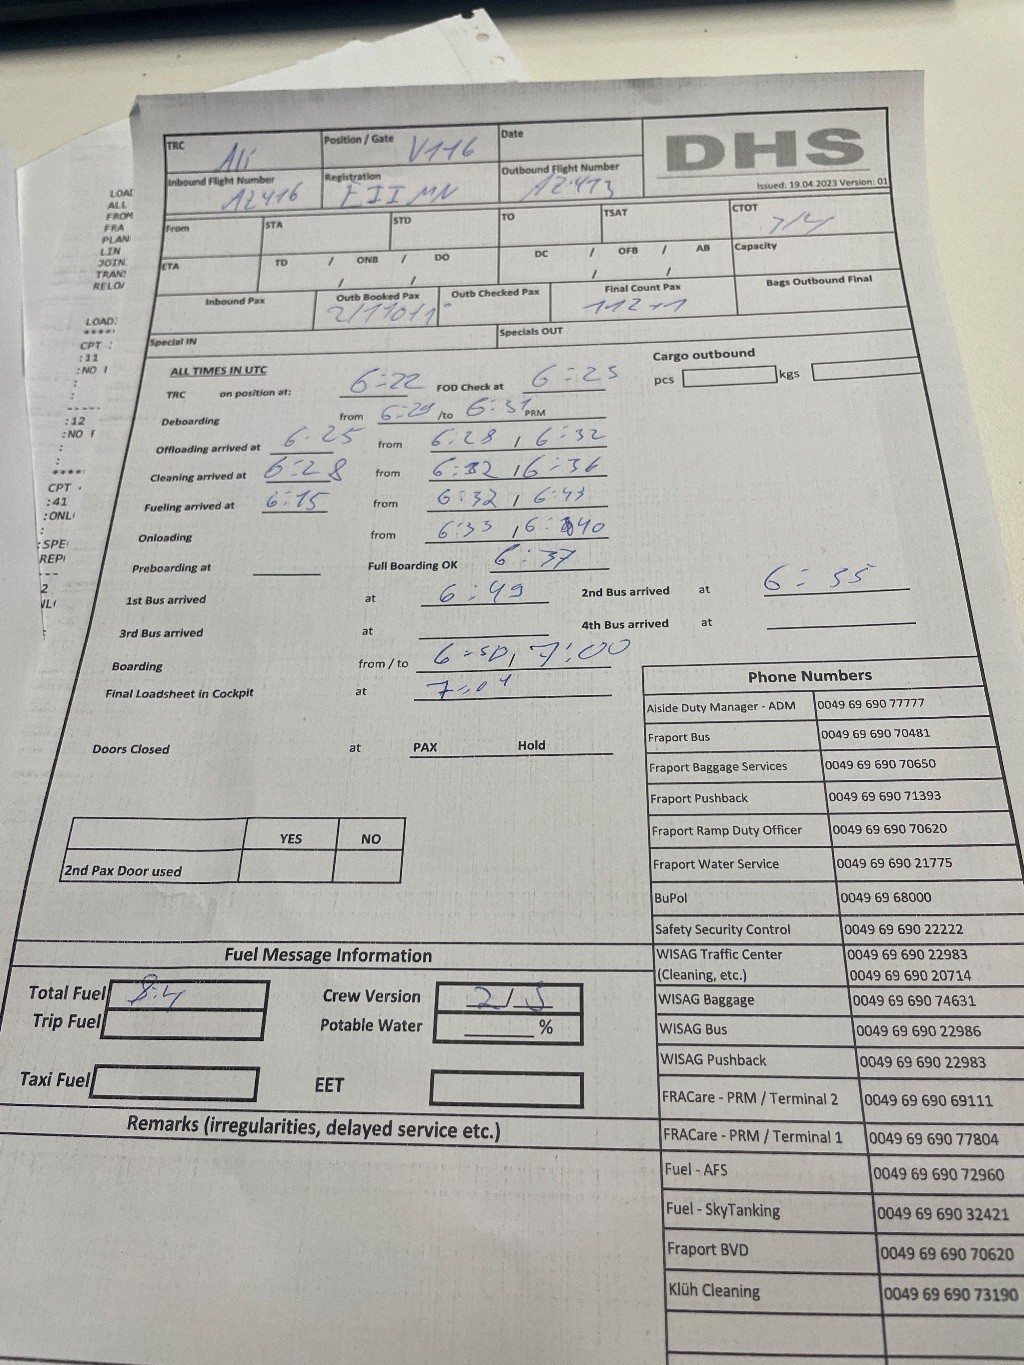 TRC Ali Position / Gate V116 Date DHS
Issued: 19.04.2023 Version: 01
Inbound Flight Number AZ416 Registration EIIMN Outbound Flight Number AZ413
From STA STD TO TSAT CTOT
ETA TD / ONB / DO DC / OFB / AB Capacity
/ / / /
Inbound Pax Outb Booked Pax Outb Checked Pax Final Count Pax 112+1 Bags Outbound Final
Special IN Specials OUT
ALL TIMES IN UTC Cargo outbound
TRC on position at: 6:22 FOD Check at 6:25 pcs kgs
Deboarding from 6:29 /to 6:31 PRM
Offloading arrived at 6:25 from 6:28 , 6:32
Cleaning arrived at 6:28 from 6:32 , 6:36
Fueling arrived at 6:15 from 6:32 , 6:43
Onloading from 6:33 , 6:40
Preboarding at Full Boarding OK 6:37
1st Bus arrived at 6:49 2nd Bus arrived at 6:55
3rd Bus arrived at 4th Bus arrived at
Boarding from / to 6:50, 7:00
Final Loadsheet in Cockpit at 7:04
Doors Closed at PAX Hold
YES NO
2nd Pax Door used
Fuel Message Information
Total Fuel 8.4 Crew Version 2/5
Trip Fuel Potable Water %
Taxi Fuel EET
Remarks (irregularities, delayed service etc.)
Phone Numbers
Aiside Duty Manager - ADM 0049 69 690 77777
Fraport Bus 0049 69 690 70481
Fraport Baggage Services 0049 69 690 70650
Fraport Pushback 0049 69 690 71393
Fraport Ramp Duty Officer 0049 69 690 70620
Fraport Water Service 0049 69 690 21775
BuPol 0049 69 68000
Safety Security Control 0049 69 690 22222
WISAG Traffic Center 0049 69 690 22983
(Cleaning, etc.) 0049 69 690 20714
WISAG Baggage 0049 69 690 74631
WISAG Bus 0049 69 690 22986
WISAG Pushback 0049 69 690 22983
FRACare - PRM / Terminal 2 0049 69 690 69111
FRACare - PRM / Terminal 1 0049 69 690 77804
Fuel - AFS 0049 69 690 72960
Fuel - SkyTanking 0049 69 690 32421
Fraport BVD 0049 69 690 70620
Klüh Cleaning 0049 69 690 73190
ALL
FROM
FRA
PLAN
LIN
JOIN.
RELO/
LOAD:
****
CPT :
:11
:NO
:
:
-----
:12
:NO
:
:
****
CPT
:41
:
---
2